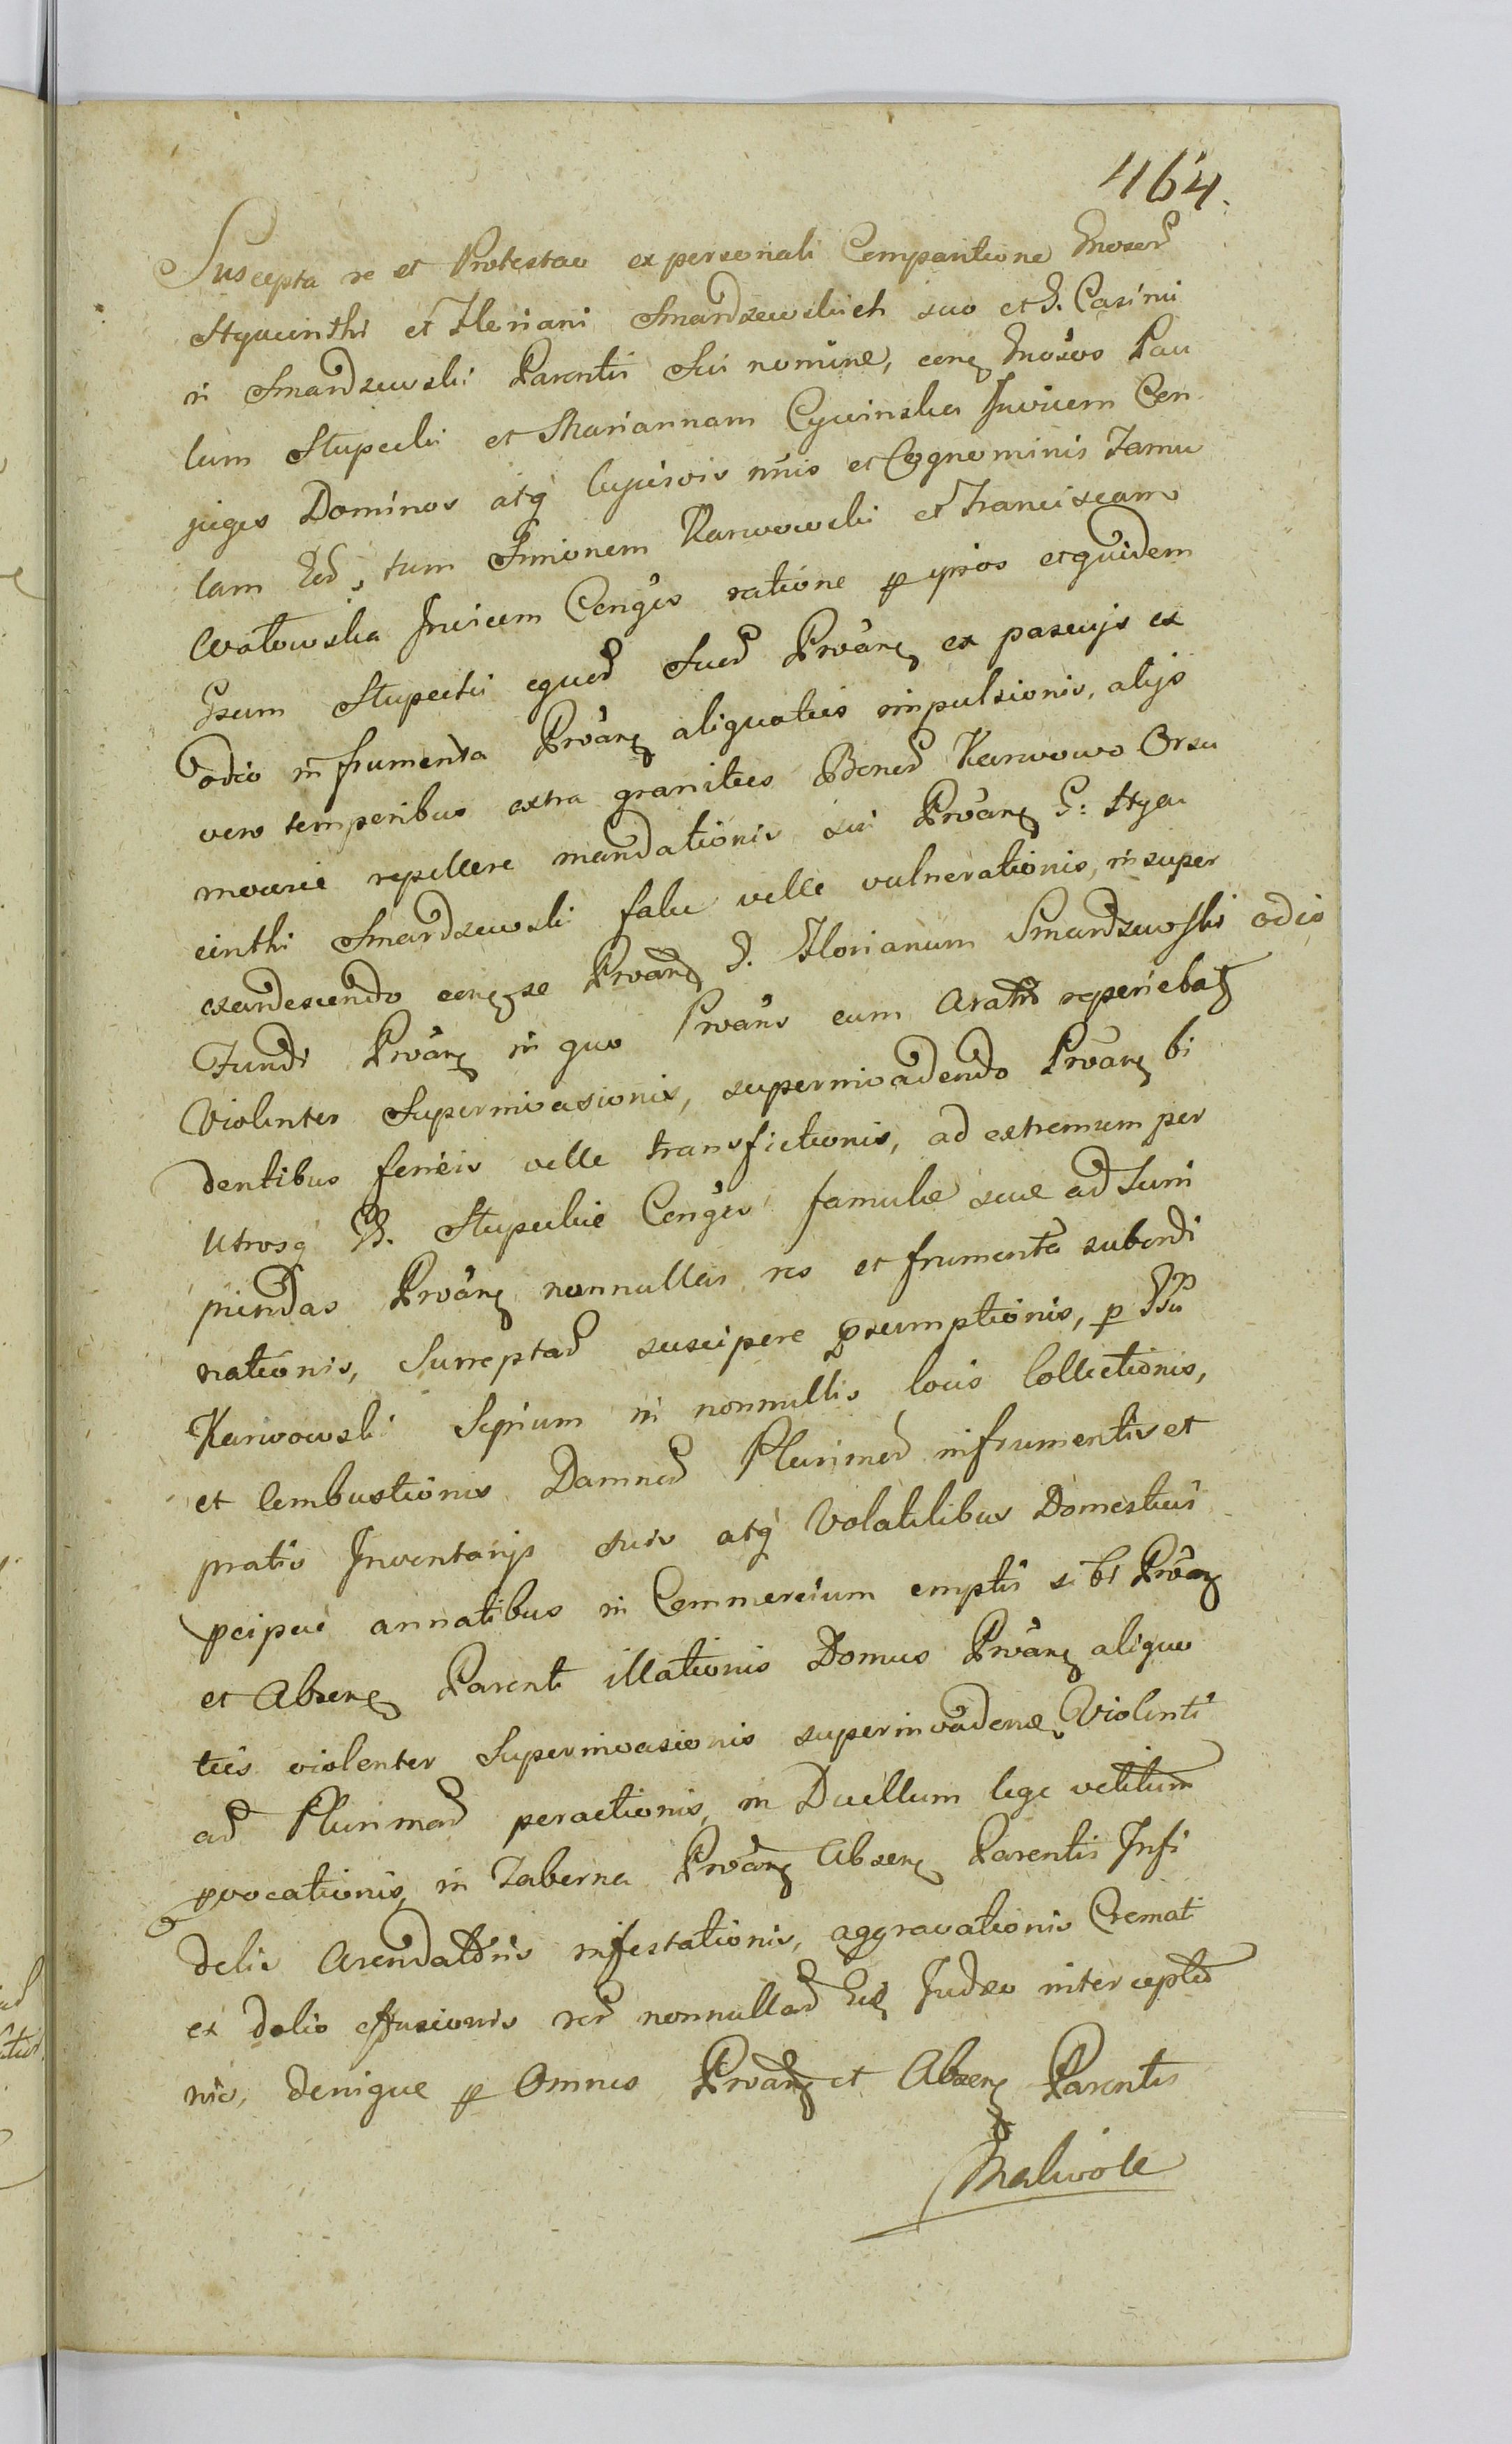 464.
Suscepta re et Protestao ex personali Comparitione Gnoror
Hyacinthi et Floriani Smardzewskich suo et G. Casimi
ri Smardzewski Parentis Sui nomine, conz Gnosos Pau
lum Stupecki et Mariannam Cywinska Invicem Con
juges Dominos atq cujusvis nnis et Cognominis Famu
lam Eor, tum Simonem Karwowski et Franciscam
Watowska Invicem Conges ratione p ipsos et quidem
Gsum Stupecki equor Suor Prvanz ex pascujs ex
odio in frumenta Prvanz aliquoties impulsionis, alijs
vero temporibus extra granities Bonor Karwowo Orsu
mowie repellere mandationis sui Prvanz G: Hya
cinthi Smardzewski falce velle vulnerationis, insuper
exardescendo conz se Prvanz G. Florianum Smardzewski odio
Fundi Prvanz in quo Prvans cum Aratro reperiebatz
Violenter Superinvasionis, superinvadendo Prvanz bi
dentibus ferreis velle transfictionis, ad extremum per
utrosq G. Stupeckie Conges famulae suae ad Suri
piendas Prvanz nonnullas res et frumenta subordi
nationis, Surreptar suscipere psumptionis, p Gsu
Karwowski Sepium in nonnullis locis Collectionis,
et Combustionis Damnor Plurimor in frumentis et
pratis Inventarijs suis atq Volatilibus Domesticis
pcipue annatibus in Commercium emptis sibi Prvanz
et Absenz Parenti illationis Domus Prvanz aliquo
ties violenter Superinvasionis superinvadendo Violenti
ar Plurimar peractionis, in Duellum lege vetitum
pvocationis, in Taberna Prvanz Absenz Parentis Infi
delis Arendatoris infestationis, aggravationis Cremati
ex dolio effusionis rer nonnullar Eid Judaeo interceptio
nis, denique p Omnes Prvanz et Absenz Parentis
Malivole